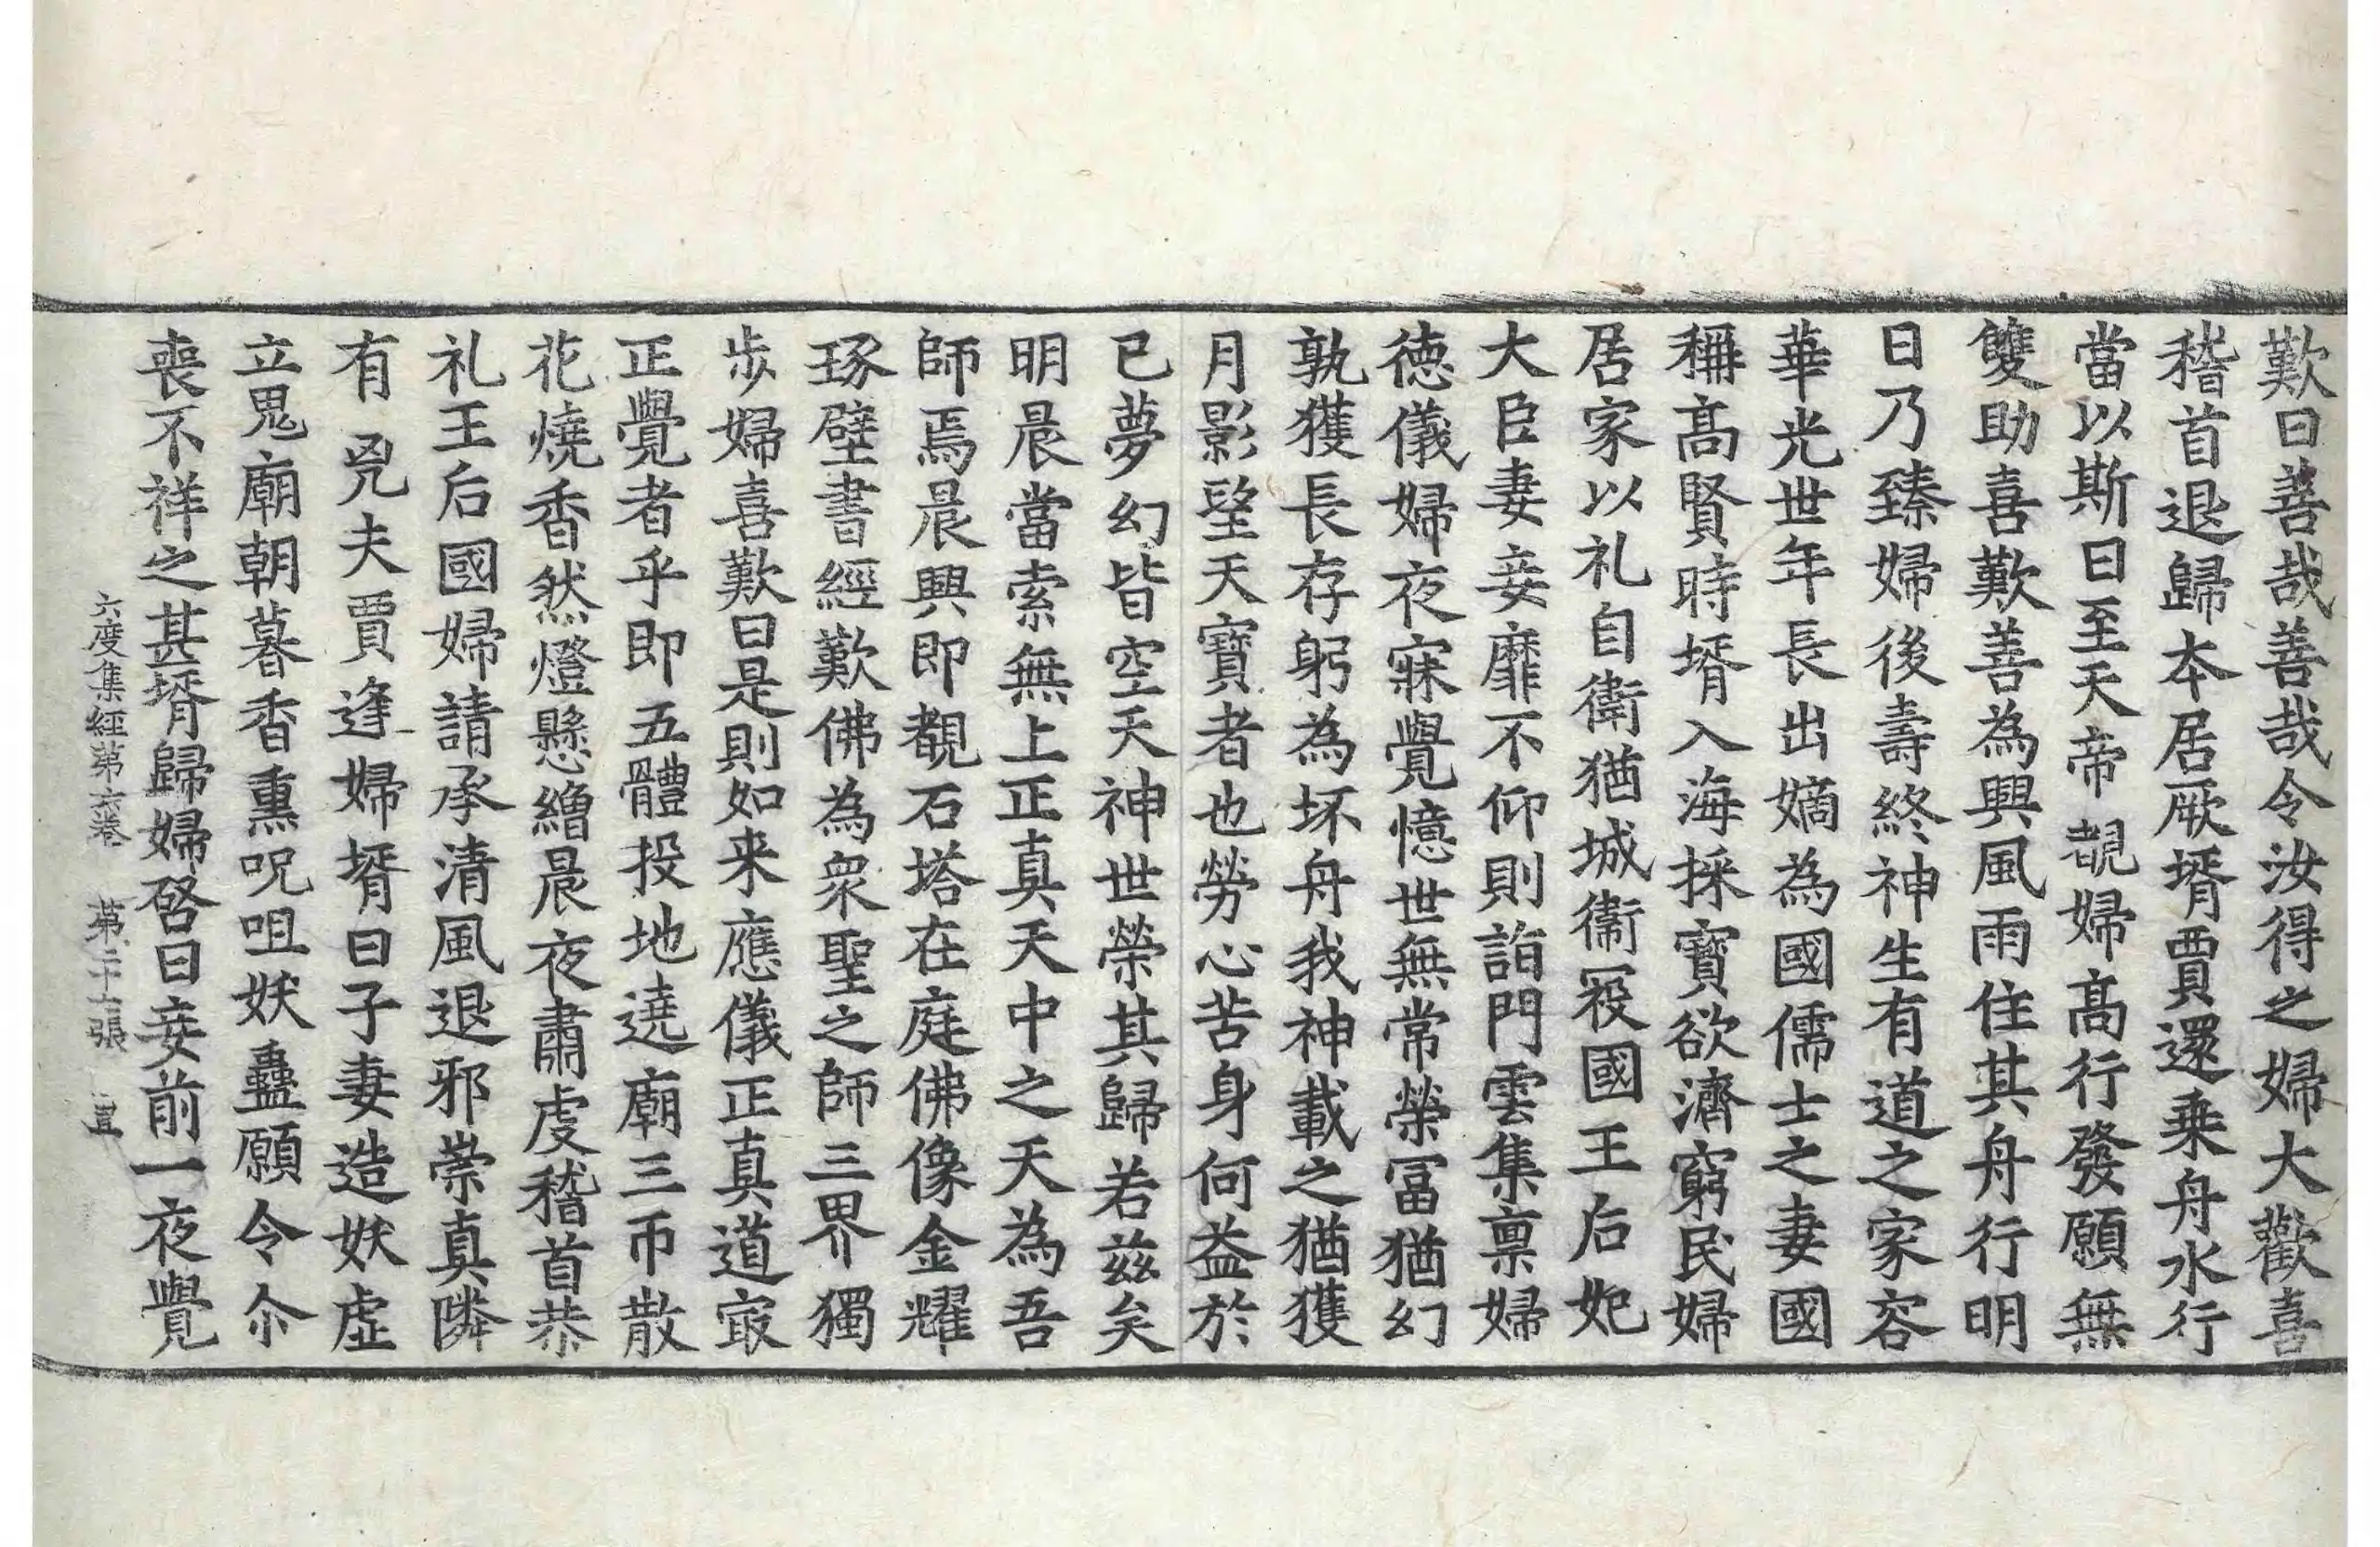 歎曰善哉善哉令汝得之婦大歡喜
稽首退歸本居厥壻賈還乗舟水行
當以斯日至天帝覩婦高行發願無
雙助喜歎善為興風雨住其舟行明
日乃臻婦後壽終神生有道之家容
華光世年長出嫡為國儒士之妻國
稱髙賢時壻入海採寶欲濟窮民婦
居家以礼自衛猶城衞冦國王后妃
大臣妻妾靡不仰則詣門雲集禀婦
徳儀婦夜寐覺憶世無常榮冨猶幻
孰獲長存躬為坏舟我神載之猶獲
月影望天寶者也勞心苦身何益於
已夢幻皆空天神世榮其歸若茲矣
明晨當索無上正真天中之天為吾
師焉晨興即覩石塔在庭佛像金耀
琢壁書經歎佛為衆聖之師三界獨
歩婦喜歎曰是則如来應儀正真道㝡
正覺者乎即五體投地遶廟三帀散
花燒香然燈懸繒晨夜肅虔稽首恭
礼王后國婦請承清風退邪崇真隣
有兇夫賈逢婦壻曰子妻造妖虚
立鬼廟朝暮香熏呪咀妖蠱願令尒
喪不祥之甚壻歸婦啓曰妾前一夜覺
六度集經第六卷 第二十七張 宜